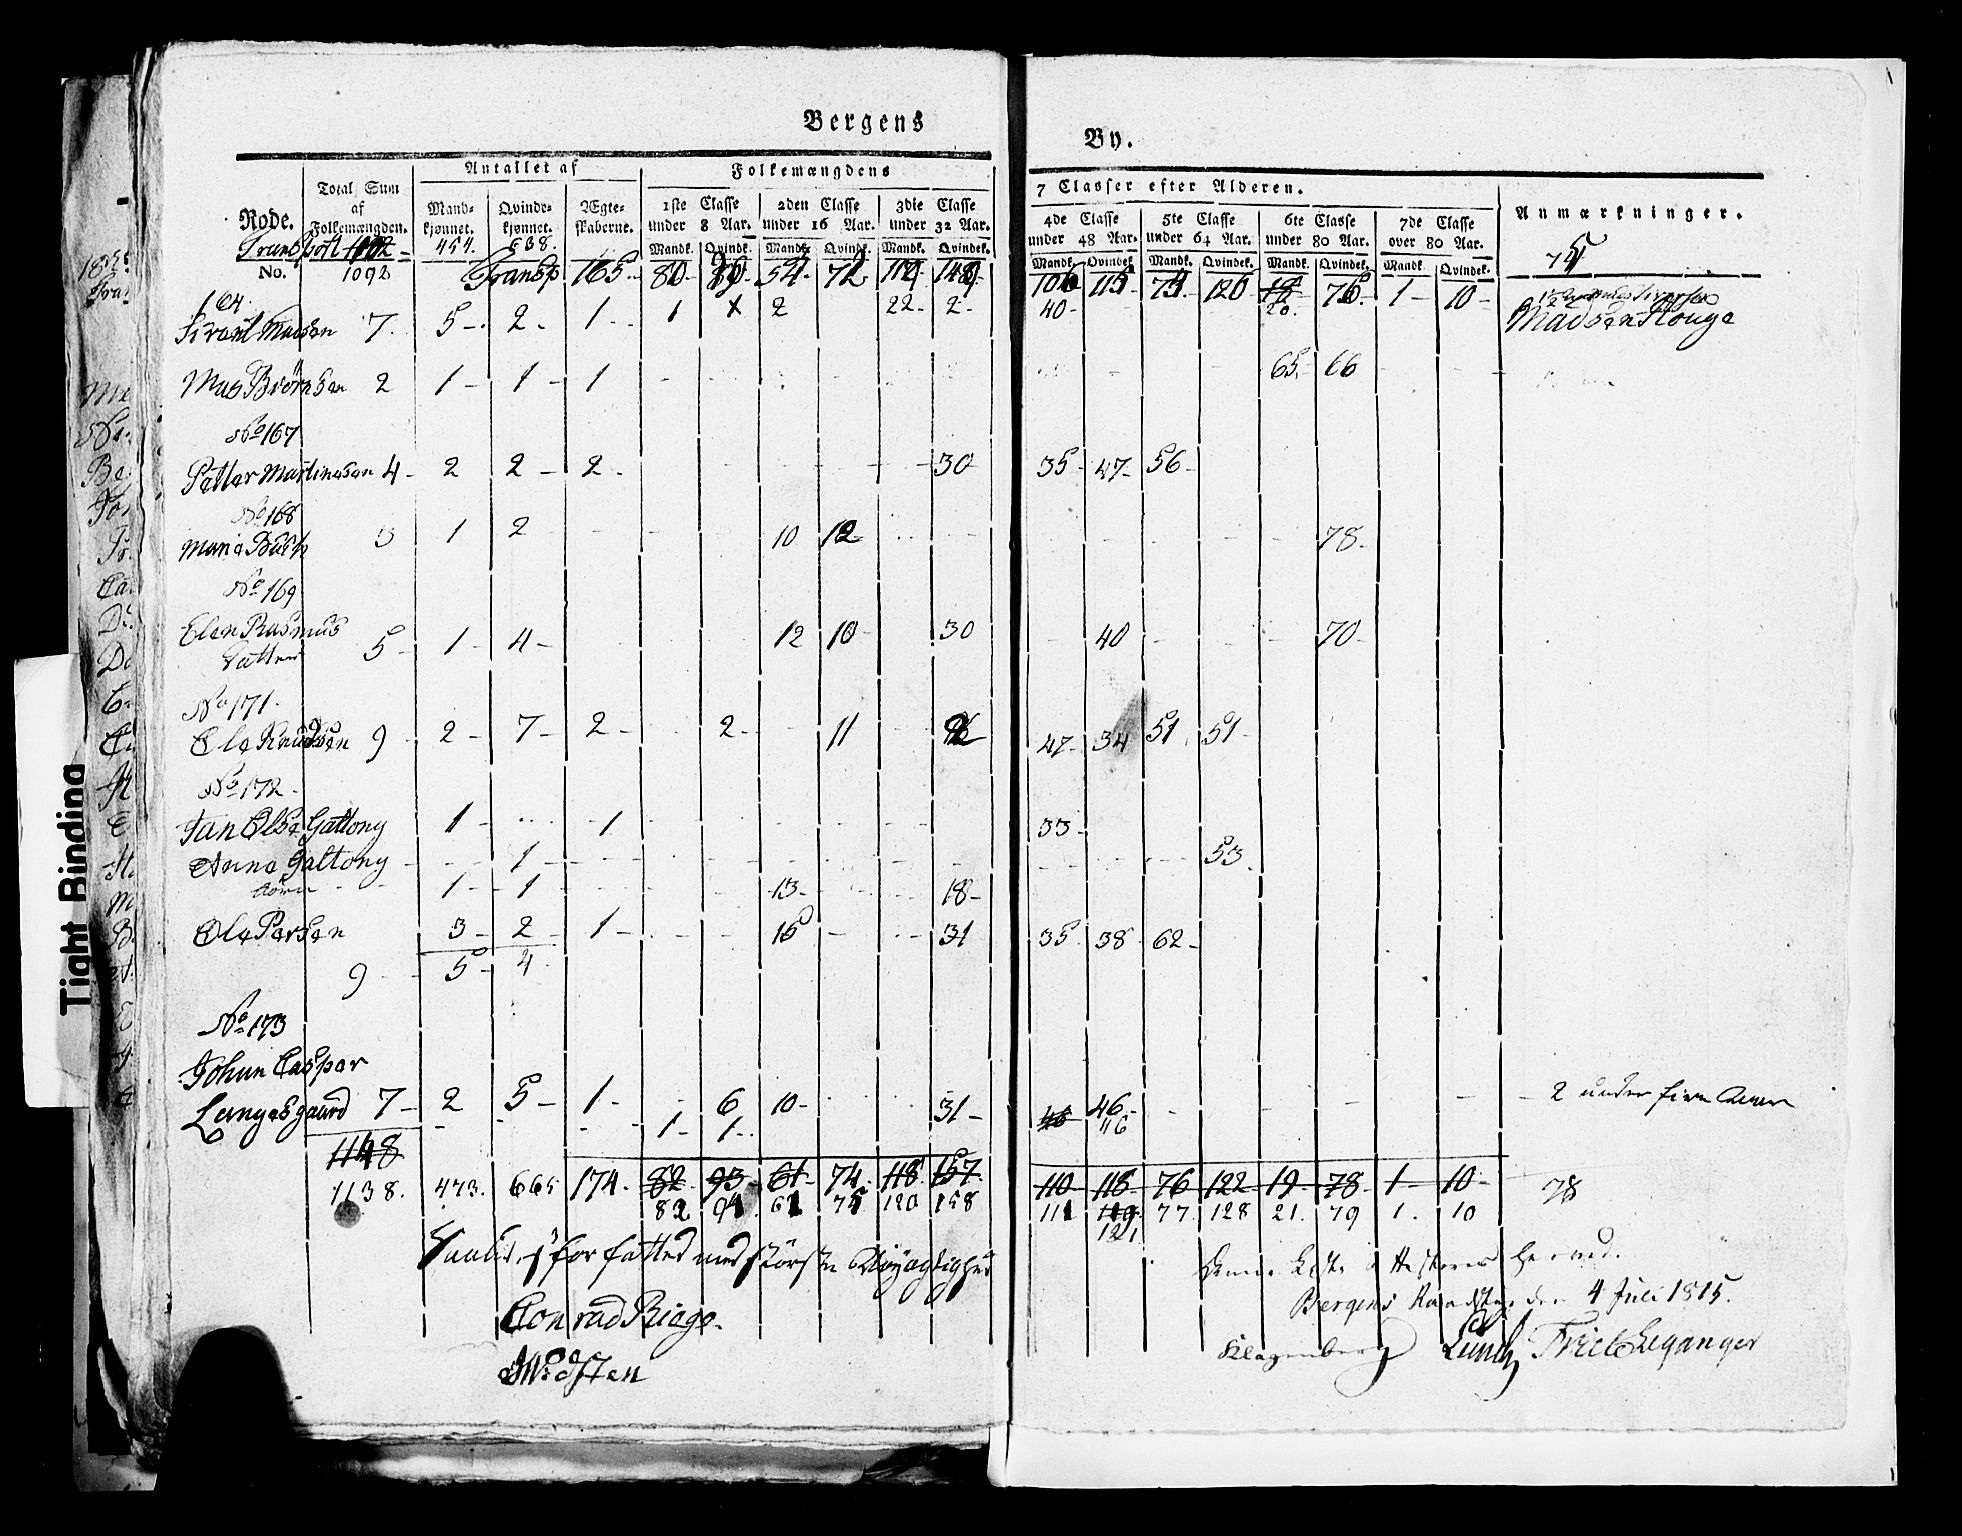 Bergens By.
Rode.
No.
Total Sum af Folkemængden.
Antallet af
Mandkjønnet.
Qvindekjønnet.
Ægteskaberne.
Folkemængdens 7 Classer efter Alderen.
1ste Classe under 8 Aar.
2den Classe under 16 Aar.
3die Classe under 32 Aar.
4de Classe under 48 Aar.
5te Classe under 64 Aar.
6te Classe under 80 Aar.
7de Classe over 80 Aar.
Mandk. Qvindek. Mandk. Qvindek. Mandk. Qvindek. Mandk. Qvindek. Mandk. Qvindek. Mandk. Qvindek. Mandk. Qvindek.
Anmærkninger.
Transport 1092 454. 638.
1092 Transp 165 80 54 72 148 106 115 126 18 76 1 10
164.
Sivert Madsen 7. 5 2 1 1 2 22. 2 40 20. Madsen Houge
Mas Biörnsen 2 1 1 1 65 66
No 167
Petter Martinesen 4 2 2 2 30 35 47 56
No 168
Maria Busk 3 1 2 10 12 78
No 169
Elen Rasmus
Datter 5 1 4 12 10 30 40 70
No 171.
Ole Knudsen 9 2 7 2 2 11 47 34 51 51
No 172
Jan Olse Galtong 1 1 33
Anne Galtong 1 53
börn 1 1 13 18
Ole Persen 3 2 1 15 31 35 38 62
9 5 4
No 173
Johan Casper
Langesgaard 7 2 5 1 6 10 31 46 46 2 under fire Aar
1 1 46
1148
1138. 473. 665 174. 82 93 61 74 118 157 110 118 76 122 19 78 1 10 78
82 94 62 75 120 158 111 119 77 128 21. 79 1. 10
121
Saaledes forfattet med störste Nöyagtighed
Conrad Biege.
Widsten
Denne Liste Attesteres herved.
Bergens Raadstue den 4 Juli 1815.
Klagenberg Lund Friele Leganger
Tight Binding